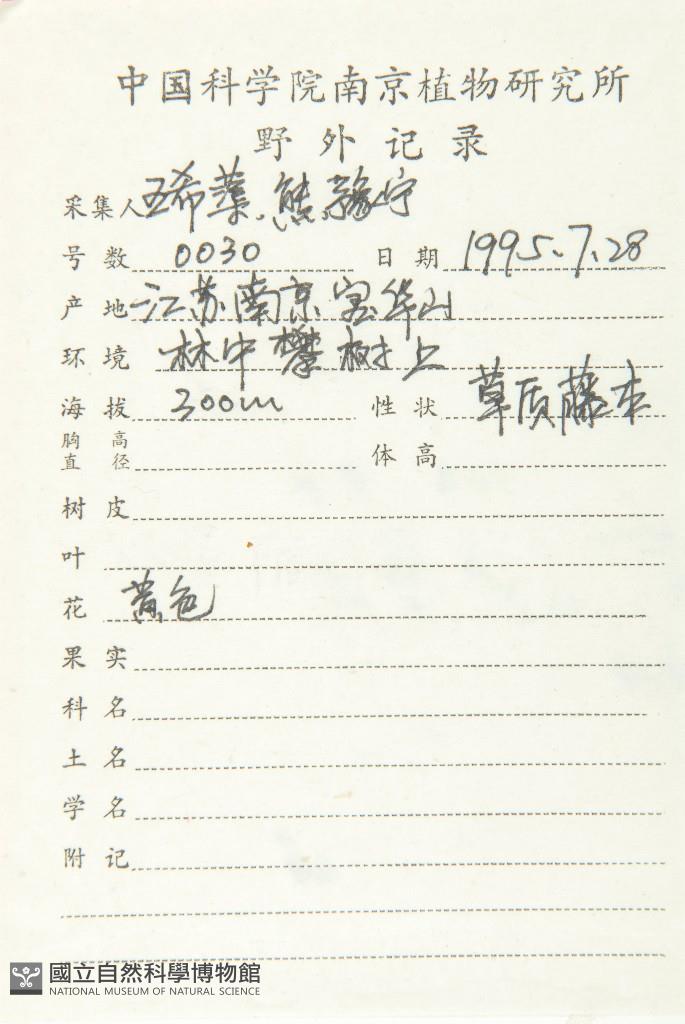 中国科学院南京植物研究所
野外记录
采集人 王希蕖、熊豫宁
号数 0030 日期 1995.7.28
产地 江苏南京宝华山
环境 林中攀树上
海拔 300m 性状 草质藤本
胸高直径 体高
树皮
叶
花 黄色
果实
科名
土名
学名
附记
國立自然科學博物館
NATIONAL MUSEUM OF NATURAL SCIENCE